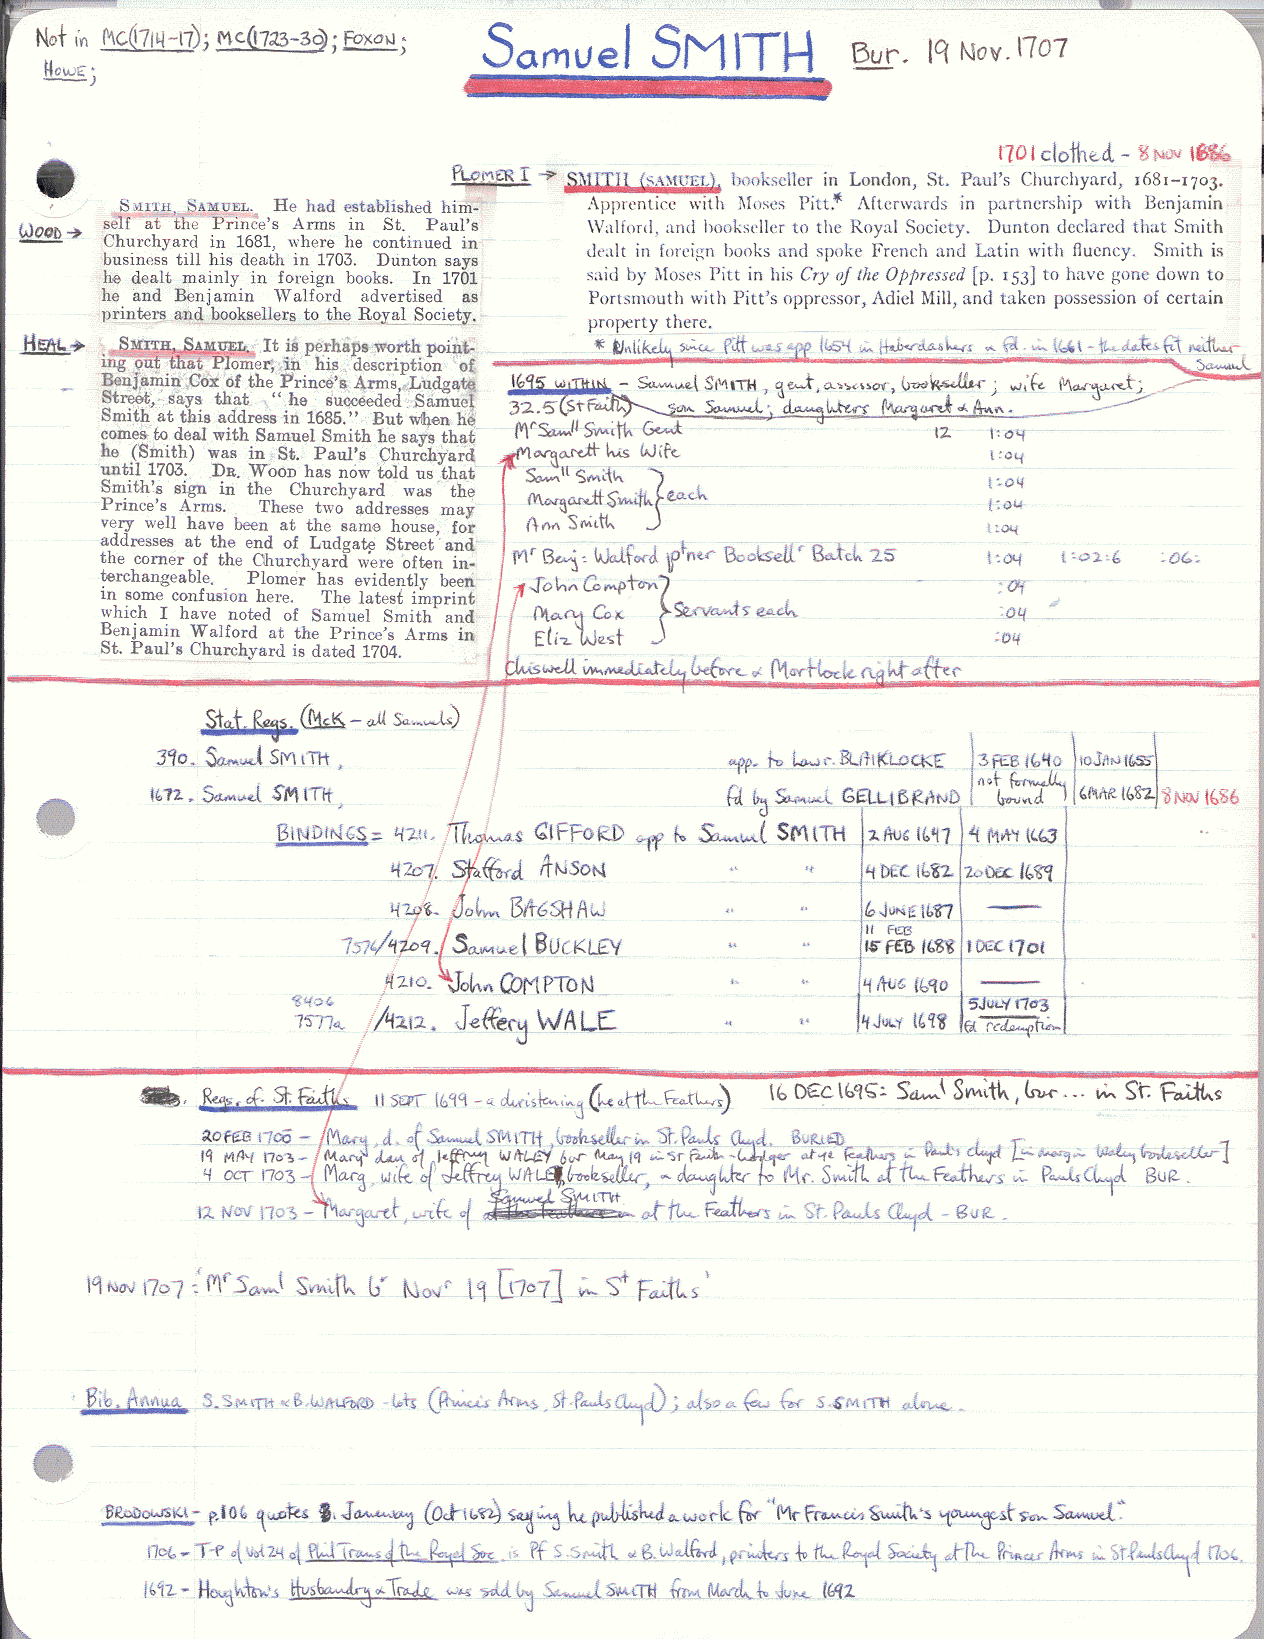 Not in MC(1714-17); MC(1723-30); FOXON;
HOWE;
Samuel SMITH Bur. 19 Nov. 1707
1701 clothed - 8 NOV 1686
PLOMER I → SMITH (SAMUEL), bookseller in London, St. Paul's Churchyard, 1681–1703.
Apprentice with Moses Pitt.* Afterwards in partnership with Benjamin
Walford, and bookseller to the Royal Society. Dunton declared that Smith
dealt in foreign books and spoke French and Latin with fluency. Smith is
said by Moses Pitt in his Cry of the Oppressed [p. 153] to have gone down to
Portsmouth with Pitt's oppressor, Adiel Mill, and taken possession of certain
property there.
* Unlikely since Pitt was app 1654 in Haberdashers & fd. in 1661 - the dates fit neither
Samuel
WOOD →
SMITH, SAMUEL. He had established him-
self at the Prince's Arms in St. Paul's
Churchyard in 1681, where he continued in
business till his death in 1703. Dunton says
he dealt mainly in foreign books. In 1701
he and Benjamin Walford advertised as
printers and booksellers to the Royal Society.
HEAL →
SMITH, SAMUEL. It is perhaps worth point-
ing out that Plomer, in his description of
Benjamin Cox of the Prince's Arms, Ludgate
Street, says that "he succeeded Samuel
Smith at this address in 1685." But when he
comes to deal with Samuel Smith he says that
he (Smith) was in St. Paul's Churchyard
until 1703. DR. WOOD has now told us that
Smith's sign in the Churchyard was the
Prince's Arms. These two addresses may
very well have been at the same house, for
addresses at the end of Ludgate Street and
the corner of the Churchyard were often in-
terchangeable. Plomer has evidently been
in some confusion here. The latest imprint
which I have noted of Samuel Smith and
Benjamin Walford at the Prince's Arms in
St. Paul's Churchyard is dated 1704.
1695 WITHIN - Samuel SMITH, gent, assessor, bookseller; wife Margaret;
32.5 (St Faith) son Samuel; daughters Margaret & Ann.
Mr Samll Smith Gent 12 1:04
Margarett his Wife 1:04
Samll Smith 1:04
Margarett Smith } each 1:04
Ann Smith 1:04
Mr Benj: Walford ptner Booksellr Batch 25 1:04 1:02:6 :06:
John Compton :04
Mary Cox } Servants each :04
Eliz West :04
Chiswell immediately before & Mortlock right after
Stat. Regs. (McK - all Samuels)
390. Samuel SMITH, app. to Lawr. BLAIKLOCKE 3 FEB 1640 10 JAN 1655
1672. Samuel SMITH, fd by Samuel GELLIBRAND not formally bound 6 MAR 1682 8 NOV 1686
BINDINGS = 4211. Thomas GIFFORD app to Samuel SMITH 2 AUG 1647 4 MAY 1663
4207. Stafford ANSON " " 4 DEC 1682 20 DEC 1689
4208. John BAGSHAW " " 6 JUNE 1687 —
11 FEB
7576/4209. Samuel BUCKLEY " " 15 FEB 1688 1 DEC 1701
4210. John COMPTON " " 4 AUG 1690 —
8406 5 JULY 1703
7577a /4212. Jeffery WALE " " 4 JULY 1698 fd redemption
Regs. of St. Faiths 11 SEPT 1699 - a christening (he at the Feathers) 16 DEC 1695: Saml Smith, bur... in St. Faiths
20 FEB 1700 - Mary, d. of Samuel SMITH, bookseller in St. Pauls Chyd. BURIED
19 MAY 1703 - Mary dau of Jeffrey WALEY bur May 19 in St Faith - Lodger at ye Feathers in Pauls chyd [in margin Waley bookseller]
4 OCT 1703 - Marg, wife of Jeffrey WALE, bookseller, & daughter to Mr. Smith at the Feathers in Pauls Chyd BUR.
Samuel SMITH
12 NOV 1703 - Margaret, wife of at the Feathers in St. Pauls Chyd - BUR.
19 NOV 1707: 'Mr Saml Smith b Novr 19 [1707] in St Faiths'
Bib. Annua S. SMITH & B. WALFORD - lots (Princes Arms, St. Pauls Chyd); also a few for S. SMITH alone.
BRODOWSKI - p.106 quotes Janeway (Oct 1682) saying he published a work for "Mr Francis Smith's youngest son Samuel."
1706 - T-P of vol 24 of Phil Trans of the Royal Soc. is Pf S. Smith & B. Walford, printers to the Royal Society at the Princes Arms in St Pauls Chyd 1706.
1692 - Houghton's Husbandry & Trade was sold by Samuel SMITH from March to June 1692